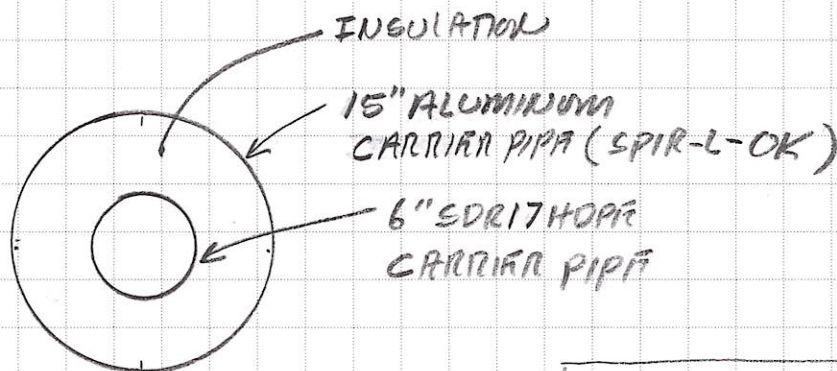 INSULATION
15" ALUMINUM
CARRIER PIPE (SPIR-L-OK)
6" SDR17 HDPE
CARRIER PIPE